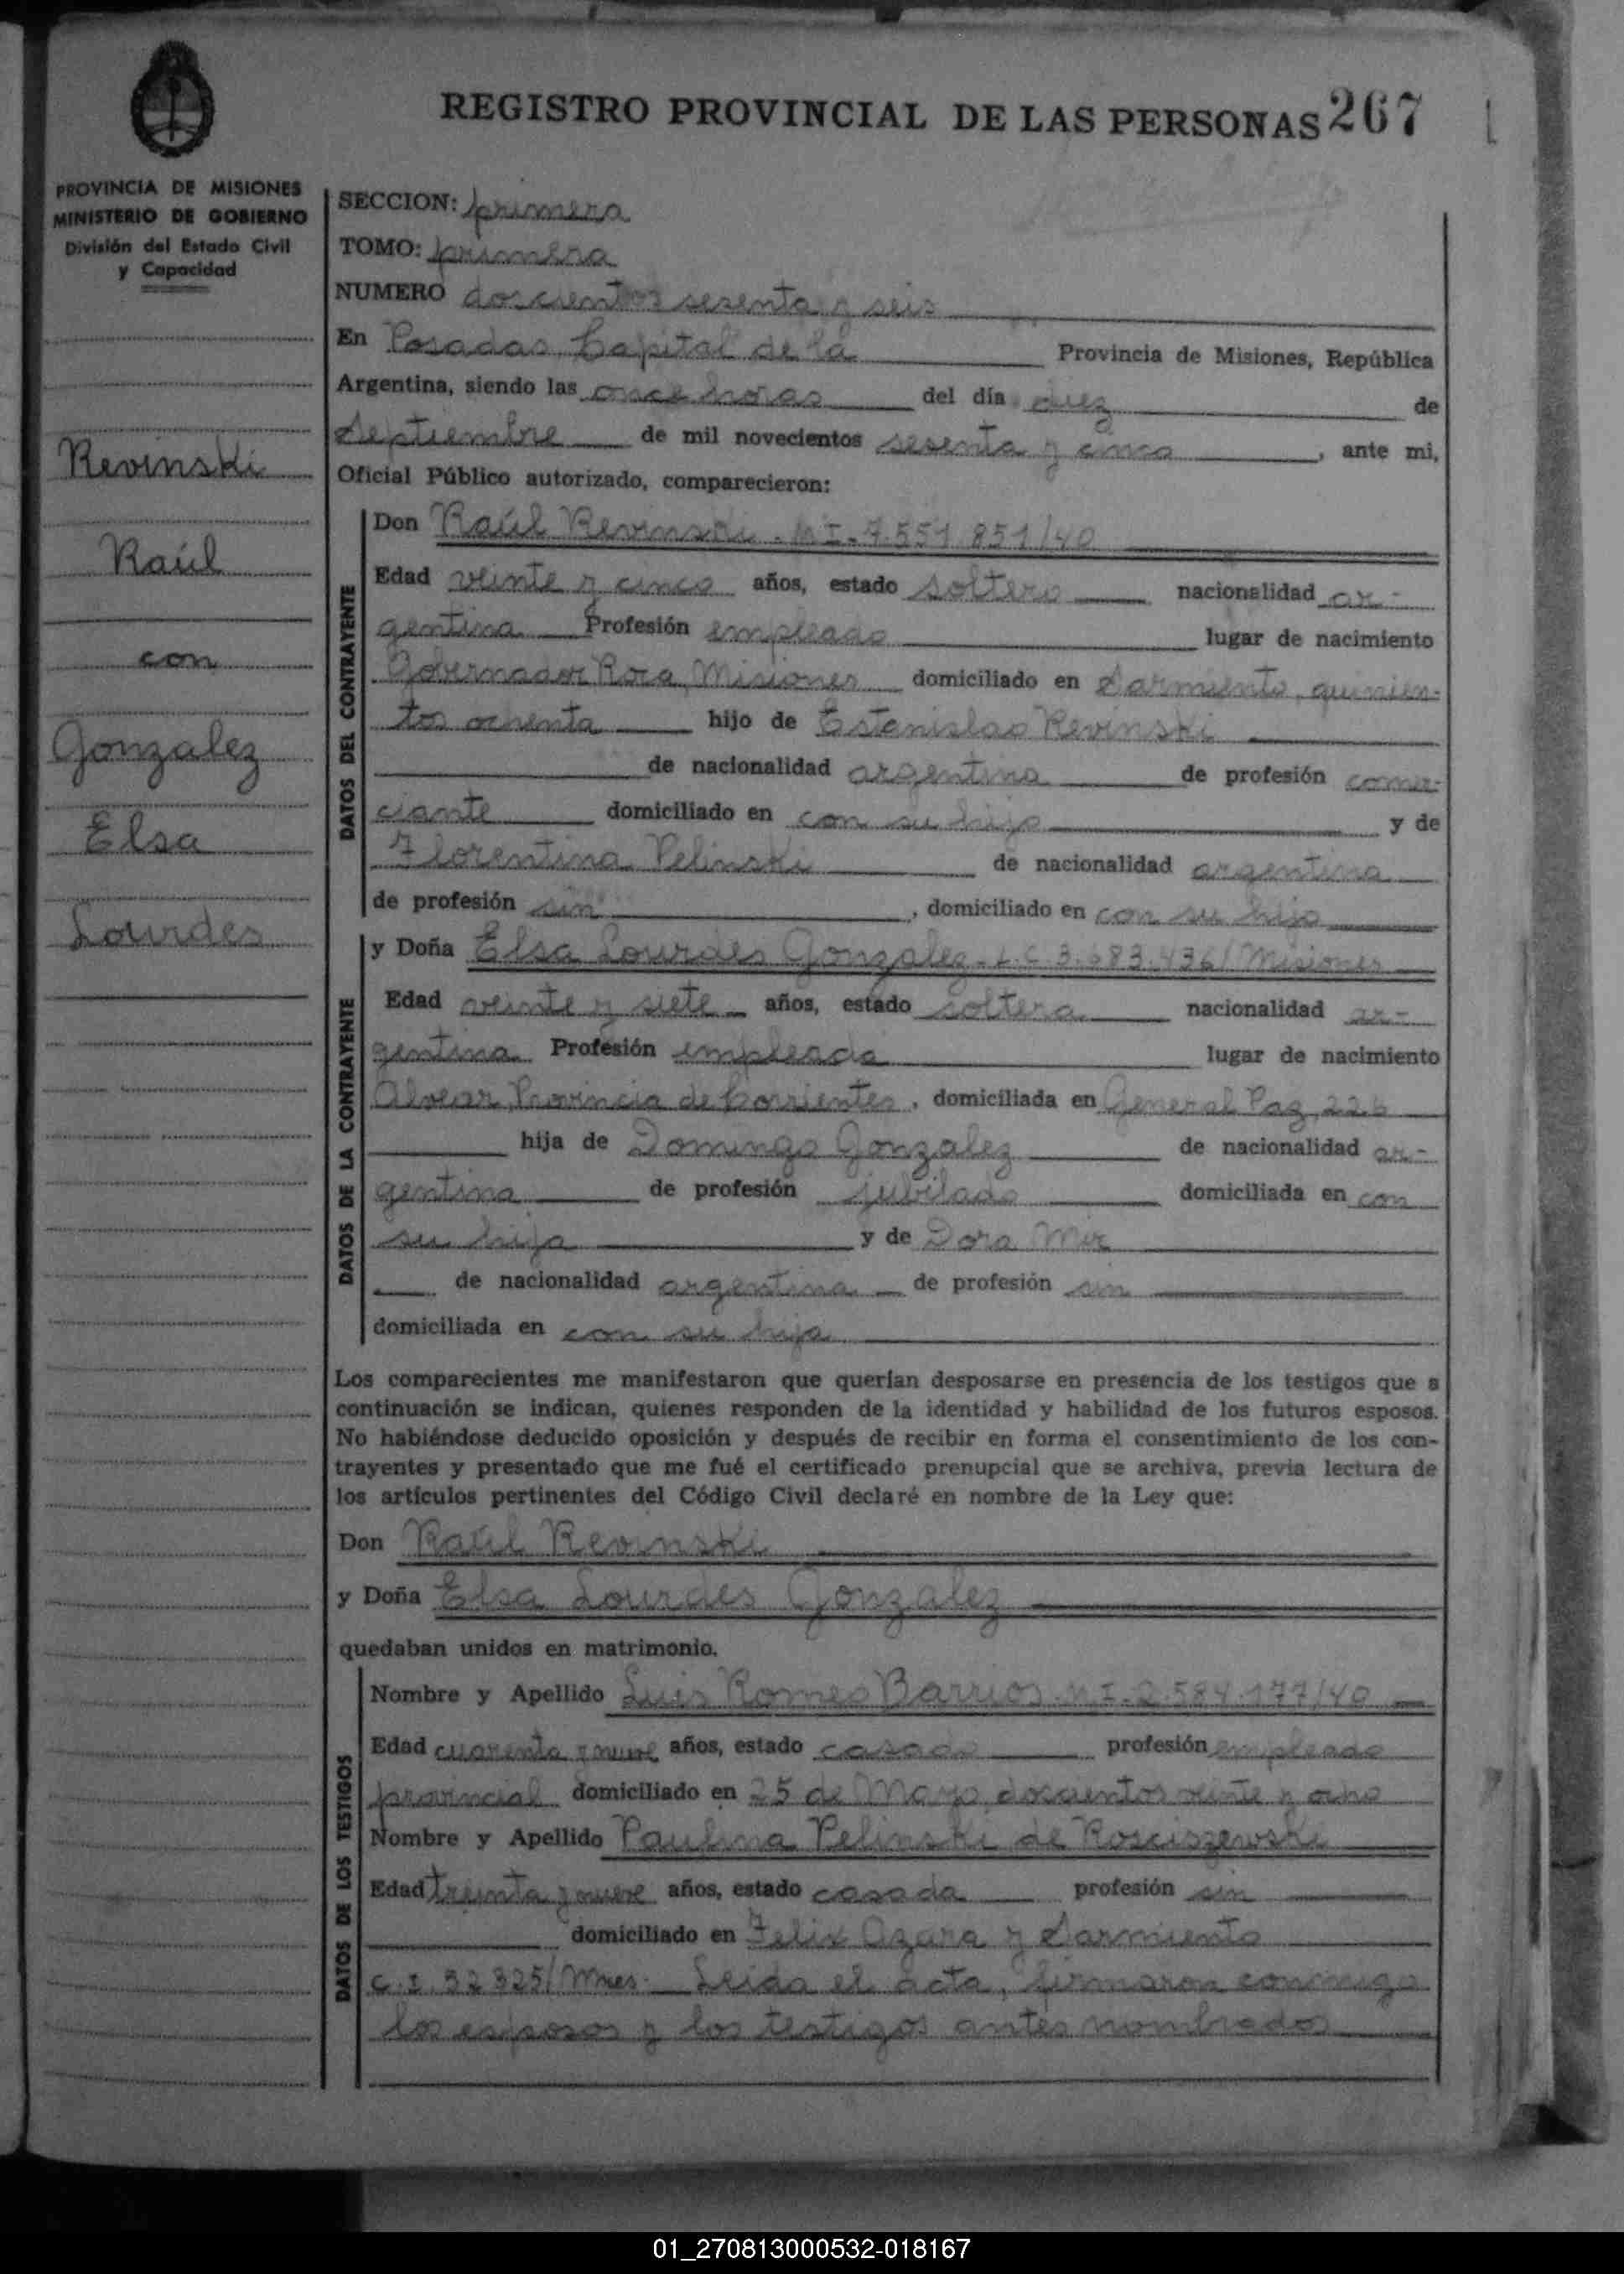 REGISTRO PROVINCIAL DE LAS PERSONAS 267
PROVINCIA DE MISIONES
MINISTERIO DE GOBIERNO
División del Estado Civil
y Capacidad
Revinski
Raúl
con
Gonzalez
Elsa
Lourdes
SECCION: primera
TOMO: primera
NUMERO doscientos sesenta y seis
En Posadas Capital de la Provincia de Misiones, República
Argentina, siendo las once horas del día diez de
Septiembre de mil novecientos sesenta y cinco, ante mi,
Oficial Público autorizado, comparecieron:
DATOS DEL CONTRAYENTE
Don Raúl Revinski. M.I. 7.551.851/40
Edad veinte y cinco años, estado soltero nacionalidad ar-
gentina Profesión empleado lugar de nacimiento
Gobernador Roca, Misiones domiciliado en Sarmiento, quinien-
tos ochenta hijo de Estanislao Revinski
de nacionalidad argentina de profesión comer-
ciante domiciliado en con su hijo y de
Florentina Pelinski de nacionalidad argentina
de profesión sin, domiciliado en con su hijo
DATOS DE LA CONTRAYENTE
y Doña Elsa Lourdes Gonzalez - L.C. 3.683.436/Misiones
Edad veinte y siete años, estado soltera nacionalidad ar-
gentina Profesión empleada lugar de nacimiento
Alvear, Provincia de Corrientes, domiciliada en General Paz, 226
hija de Domingo Gonzalez de nacionalidad ar-
gentina de profesión jubilado domiciliada en con
su hija y de Dora Mir
de nacionalidad argentina de profesión sin
domiciliada en con su hija
Los comparecientes me manifestaron que querían desposarse en presencia de los testigos que a
continuación se indican, quienes responden de la identidad y habilidad de los futuros esposos.
No habiéndose deducido oposición y después de recibir en forma el consentimiento de los con-
trayentes y presentado que me fué el certificado prenupcial que se archiva, previa lectura de
los artículos pertinentes del Código Civil declaré en nombre de la Ley que:
Don Raúl Revinski
y Doña Elsa Lourdes Gonzalez
quedaban unidos en matrimonio.
DATOS DE LOS TESTIGOS
Nombre y Apellido Luis Romeo Barrios. M.I. 2.584.177/40
Edad cuarenta y nueve años, estado casado profesión empleado
provincial domiciliado en 25 de Mayo, doscientos veinte y ocho
Nombre y Apellido Paulina Pelinski de Rosciszewski
Edad treinta y nueve años, estado casada profesión sin
domiciliado en Felix Azara y Sarmiento
C.I. 52325/Mnes. Leida el acta, firmaron conmigo
los esposos y los testigos antes nombrados
01_270813000532-018167